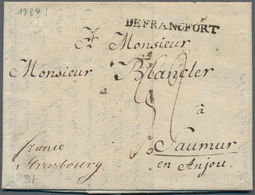 1784!
DE FRANCFORT
A Monsieur
Monsieur Blancler
à
Saumur
en Anjou
franco
Strasbourg